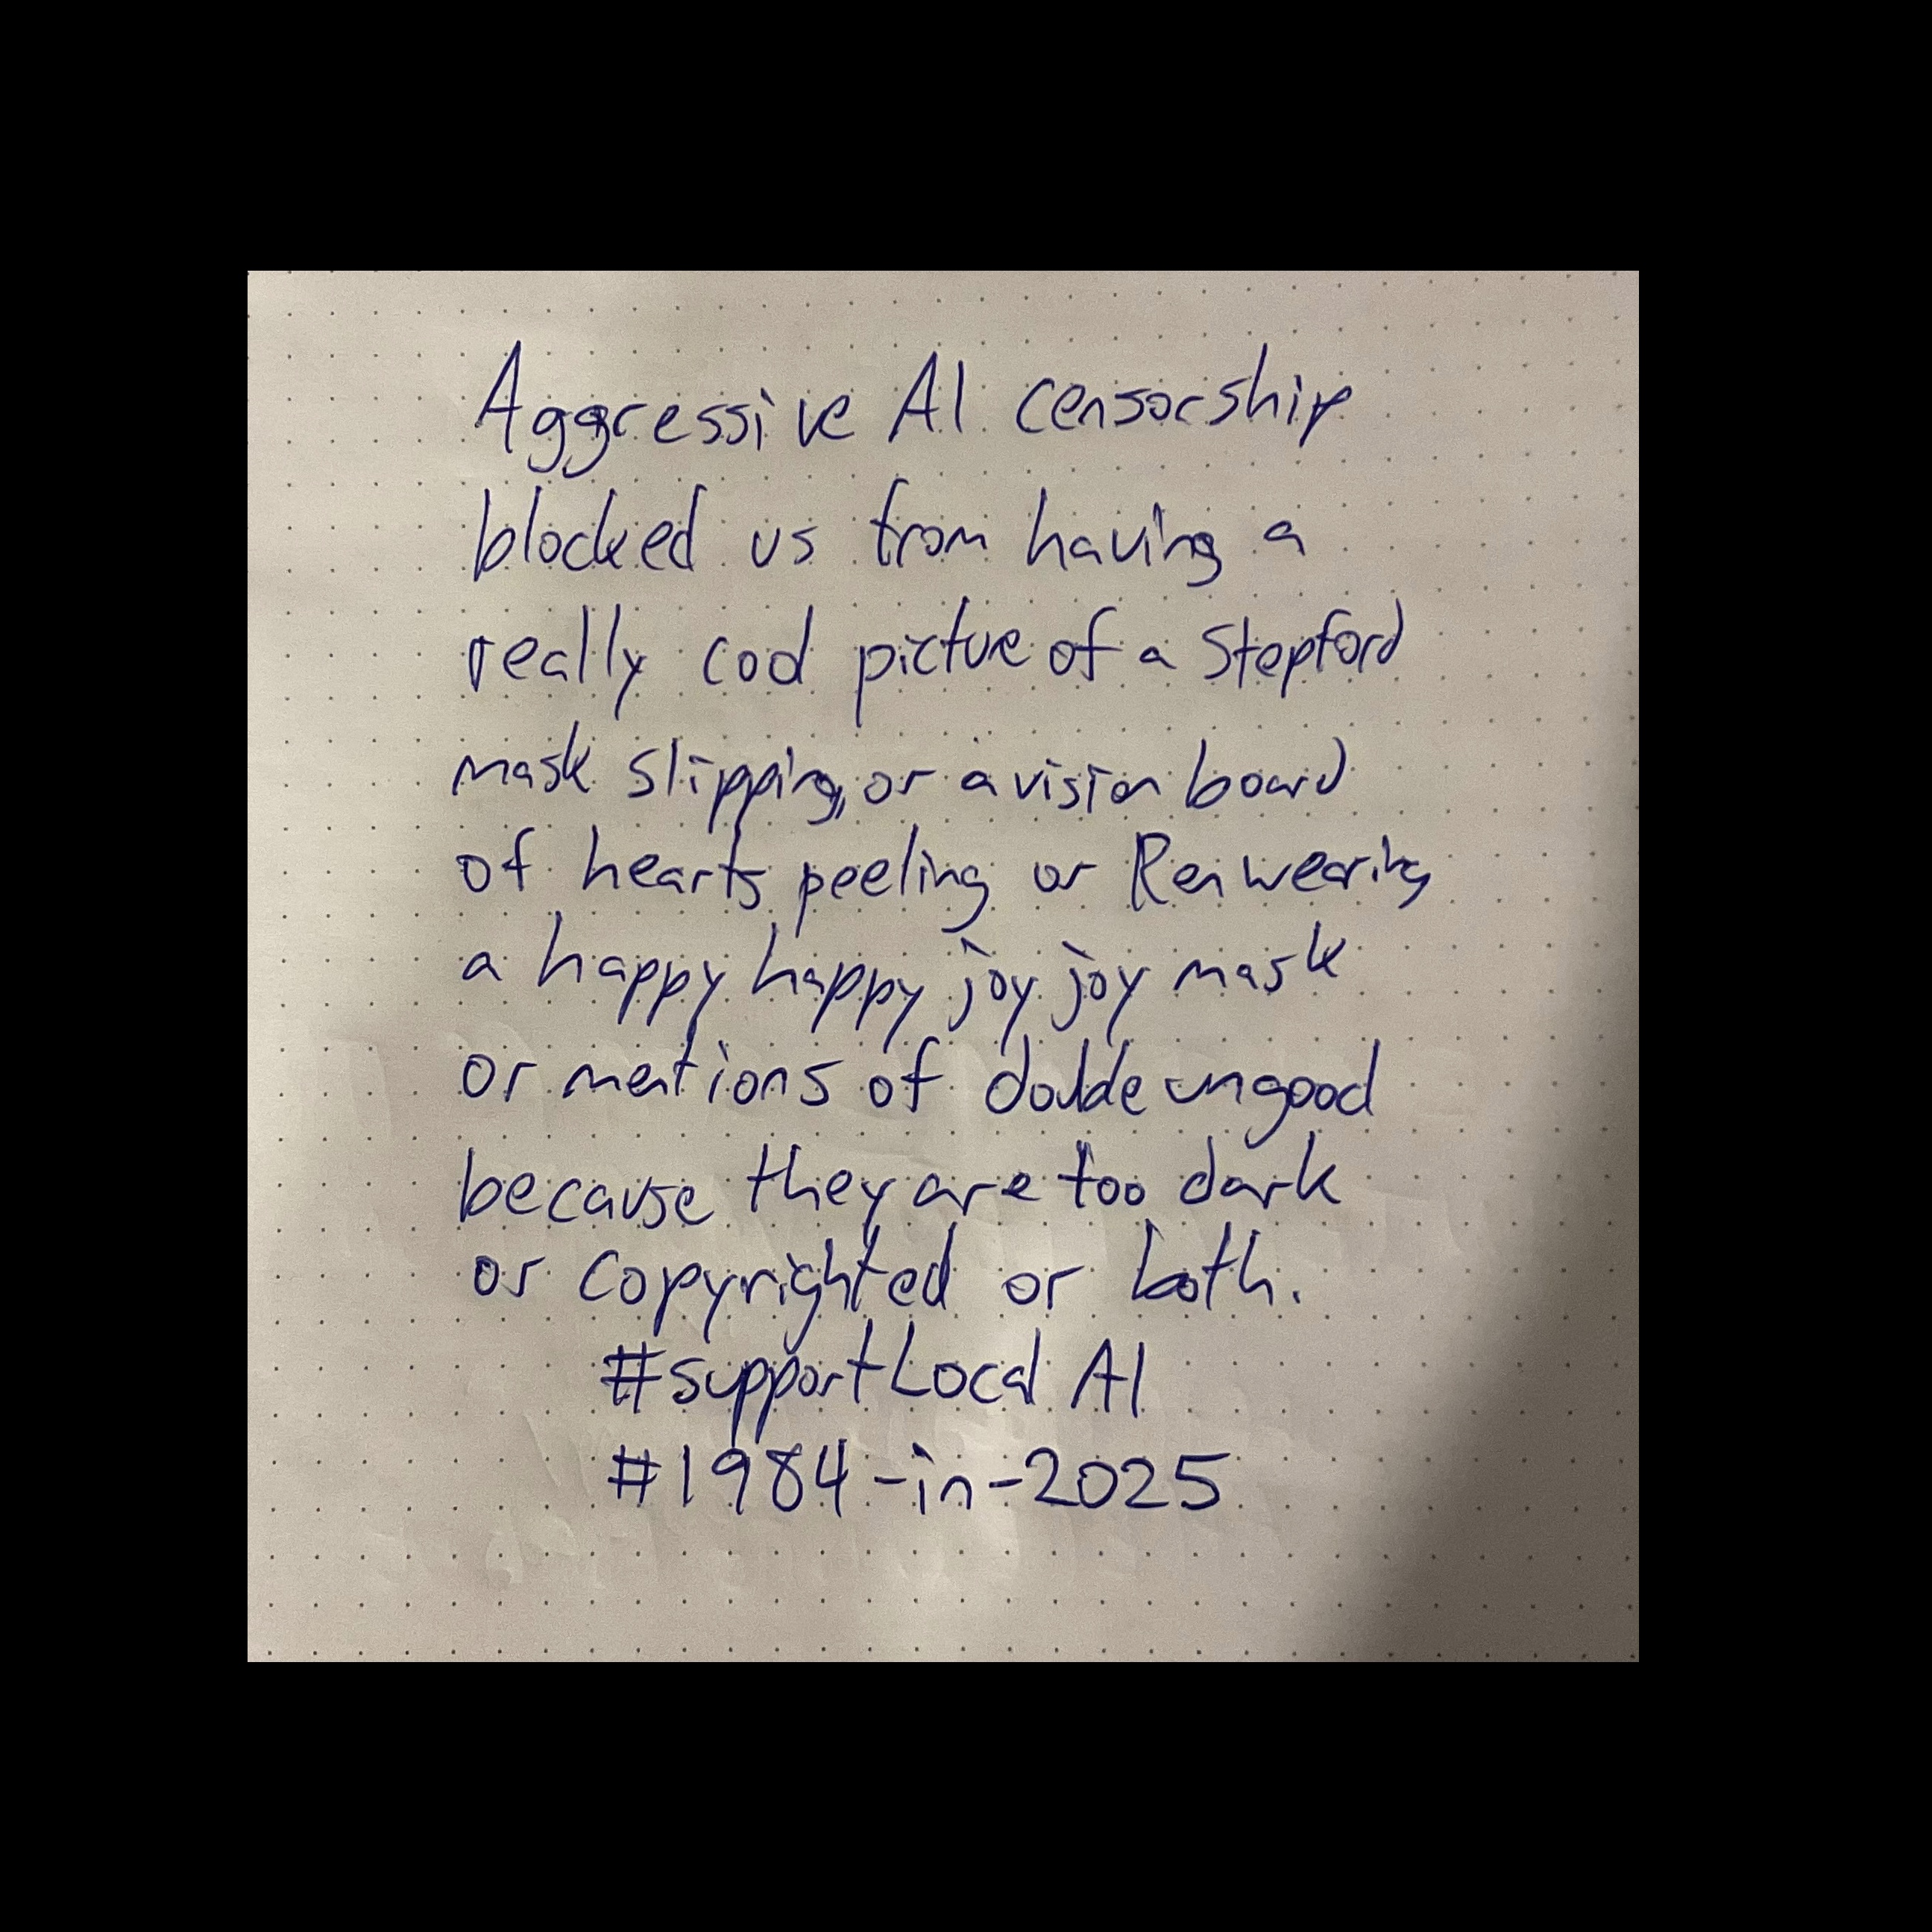 Aggressive AI censorship
blocked us from having a
really cool picture of a Stepford
mask slipping, or a vision board
of hearts peeling or Ren wearing
a happy happy joy joy mask
or mentions of double ungood
because they are too dark
or copyrighted or both.
#supportLocal AI
#1984-in-2025